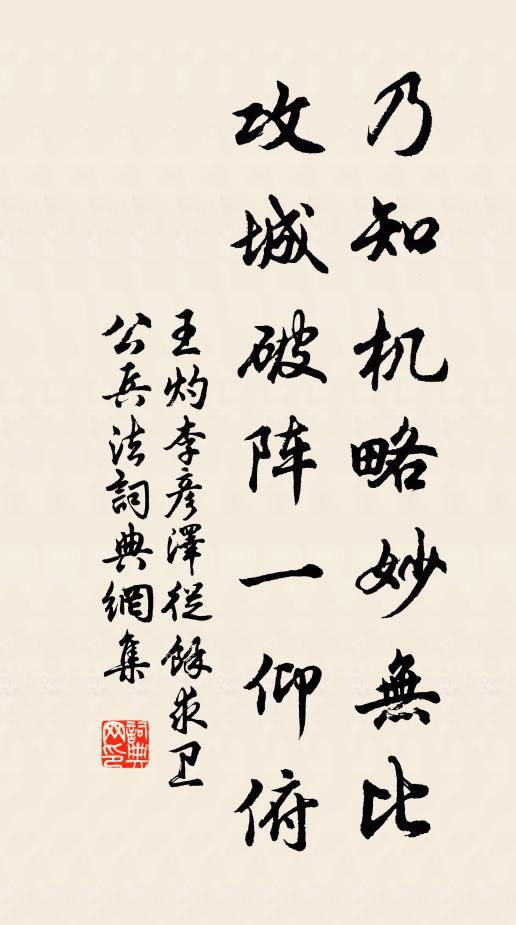 乃知机略妙無比
攻城破阵一仰俯
王灼李彦澤從餘求卫
公兵法詞典網集
詞典
网印